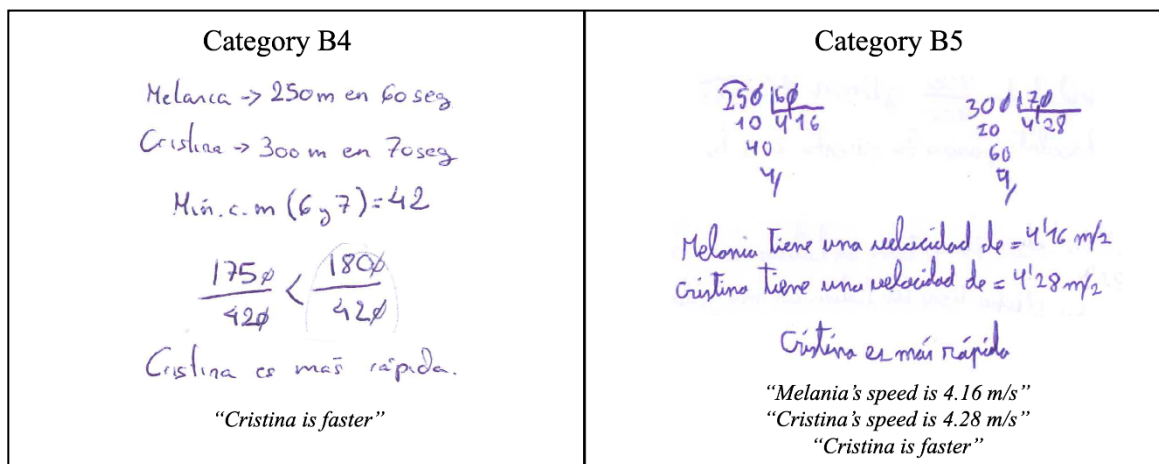 Category B4
Melania -> 250m en 60seg
Cristina -> 300m en 70seg
Mín.c.m (6 y 7)=42
1750 < 1800
420 420
Cristina es más rápida.
“Cristina is faster”
Category B5
250 60
10 4'16
40
4
300 70
20 4'28
60
4
Melania tiene una velocidad de = 4'16 m/s
Cristina tiene una velocidad de = 4'28 m/s
Cristina es más rápida
“Melania’s speed is 4.16 m/s”
“Cristina’s speed is 4.28 m/s”
“Cristina is faster”